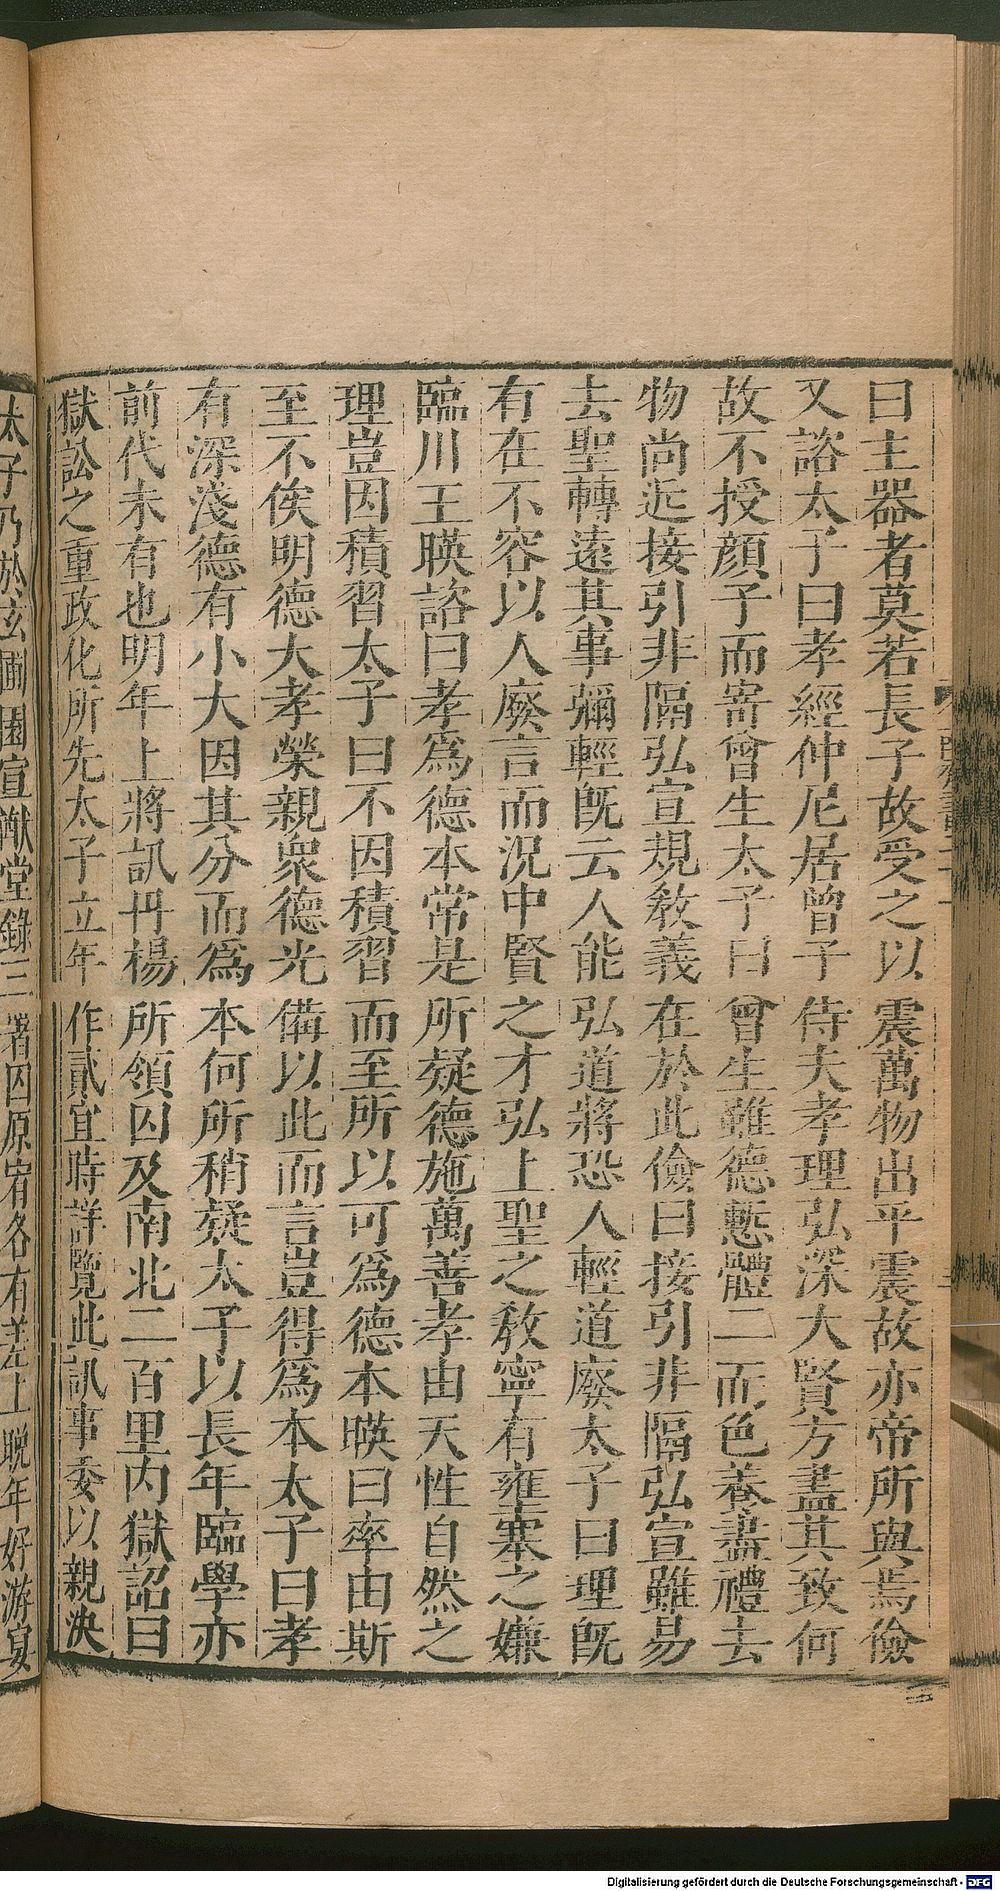 曰主器者莫若長子故受之以震萬物出乎震故亦帝所與焉儉
又諮太子曰孝經仲尼居曾子侍夫孝理弘深大賢方盡其致何
故不授顏子而寄曾生太子曰曾生雖德慙體二而色養盡禮去
物尚近接引非隔弘宣規敎義在於此儉曰接引非隔弘宣雖易
去聖轉遠其事彌輕旣云人能弘道將恐人輕道廢太子曰理旣
有在不容以人廢言而況中賢之才弘上聖之敎寧有壅塞之嫌
臨川王暎諮曰孝爲德本常是所疑德施萬善孝由天性自然之
理豈因積習太子曰不因積習而至所以可爲德本暎曰率由斯
至不俟明德大孝榮親衆德光備以此而言豈得爲本太子曰孝
有深淺德有小大因其分而爲本何所稍疑太子以長年臨學亦
前代未有也明年上將訊丹楊所領囚及南北二百里內獄詔曰
獄訟之重政化所先太子立年作貳宜時詳覽此訊事委以親決
太子乃於玄圃園宣猷堂錄三署囚原宥各有差上晚年好游宴
Digitalisierung gefördert durch die Deutsche Forschungsgemeinschaft - DFG